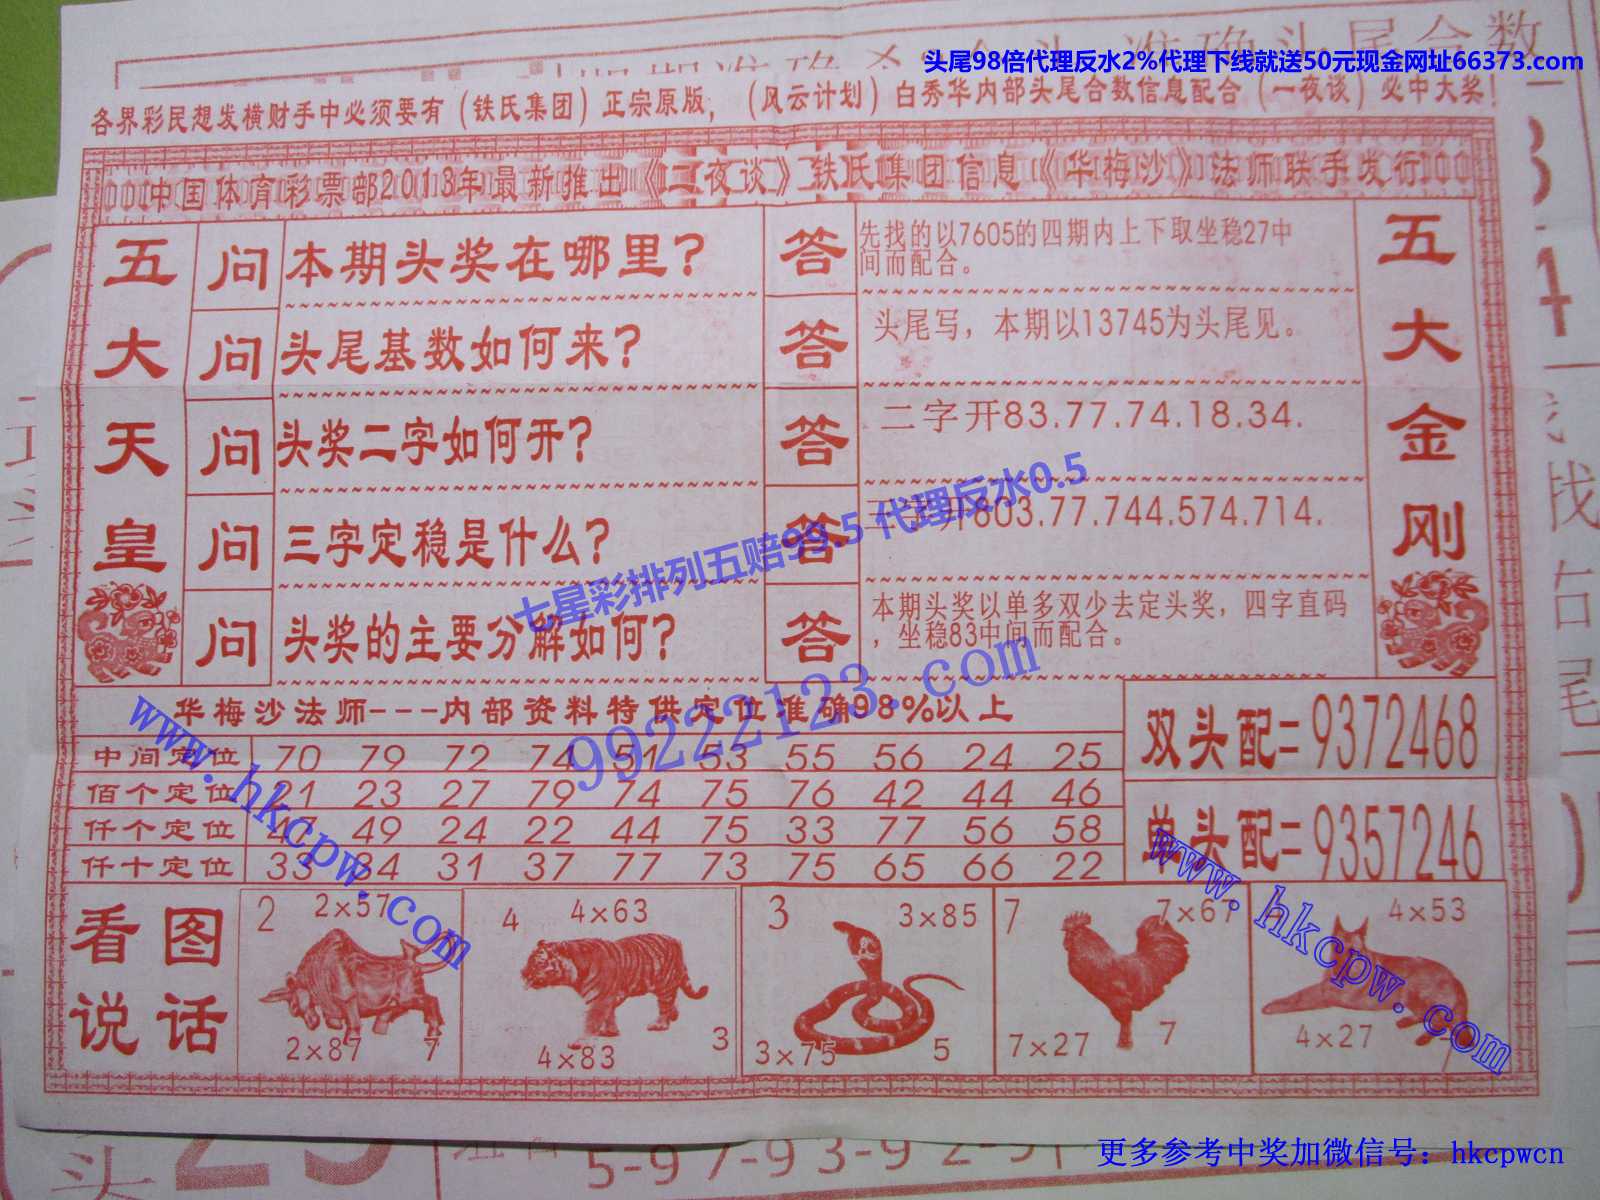 头尾98倍代理反水2%代理下线就送50元现金网址66373.com
各界彩民想发横财手中必须要有（铁氏集团）正宗原版，（风云计划）白秀华内部头尾合数信息配合（一夜谈）必中大奖！
中国体育彩票部2013年最新推出《二夜谈》铁氏集团信息《华梅沙》法师联手发行
五大天皇
问 本期头奖在哪里？
答 先找的以7605的四期内上下取坐稳27中
间而配合。
问 头尾基数如何来？
答 头尾写，本期以13745为头尾见。
问 头奖二字如何开？
答 二字开83.77.74.18.34.
问 三字定稳是什么？
答 三字开803.77.744.574.714.
问 头奖的主要分解如何？
答 本期头奖以单多双少去定头奖，四字直码
，坐稳83中间而配合。
五大金刚
七星彩排列五赔99.5 代理反水0.5
99222123.com
华梅沙法师---内部资料特供定位准确98%以上
中间定位 70 79 72 74 51 53 55 56 24 25
佰个定位 21 23 27 79 74 75 76 42 44 46
仟个定位 47 49 24 22 44 75 33 77 56 58
仟十定位 33 34 31 37 77 73 75 65 66 22
双头配=9372468
单头配=9357246
www.hkcpw.com
www.hkcpw.com
看图
说话
2 2×57
2×87 7
4 4×63
4×83 3
3 3×85
3×75 5
7 7×67
7×27 7
4×53
4×27
5-97-93-92-51
更多参考中奖加微信号：hkcpwcn